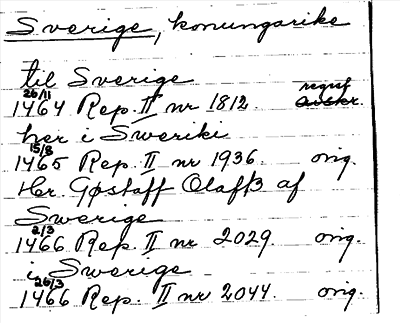 Sverige, konungarike
til Sverige
26/11 regest
1464 Rep. II nr 1812. avskr.
her i Sweriki
15/8
1465 Rep. II nr 1936. orig.
Her Gøstaff Olaffß af
Swerige
2/3
1466 Rep. II nr 2029. orig.
i Swerige
26/3
1466 Rep. II nr 2044. orig.